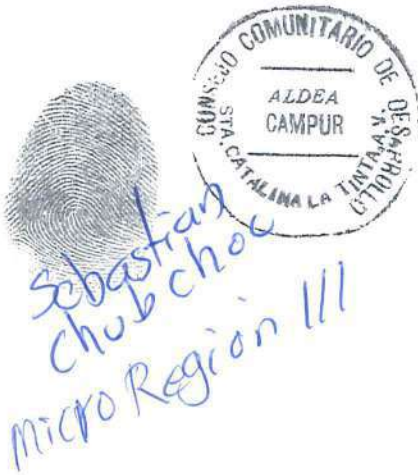 CONSEJO COMUNITARIO DE DESARROLLO
ALDEA
CAMPUR
STA. CATALINA LA TINTA, A.V.
Sebastian
chub choc
micro Región III